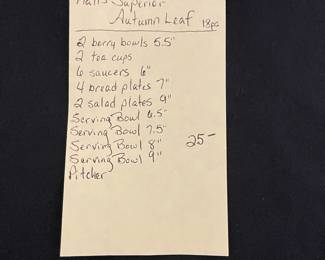 Hall's Superior
Autumn Leaf 18pc
2 berry bowls 5.5"
2 tea cups
6 saucers 6"
4 bread plates 7"
2 salad plates 9"
Serving Bowl 6.5"
Serving Bowl 7.5"
Serving Bowl 8" 25-
Serving Bowl 9"
Pitcher